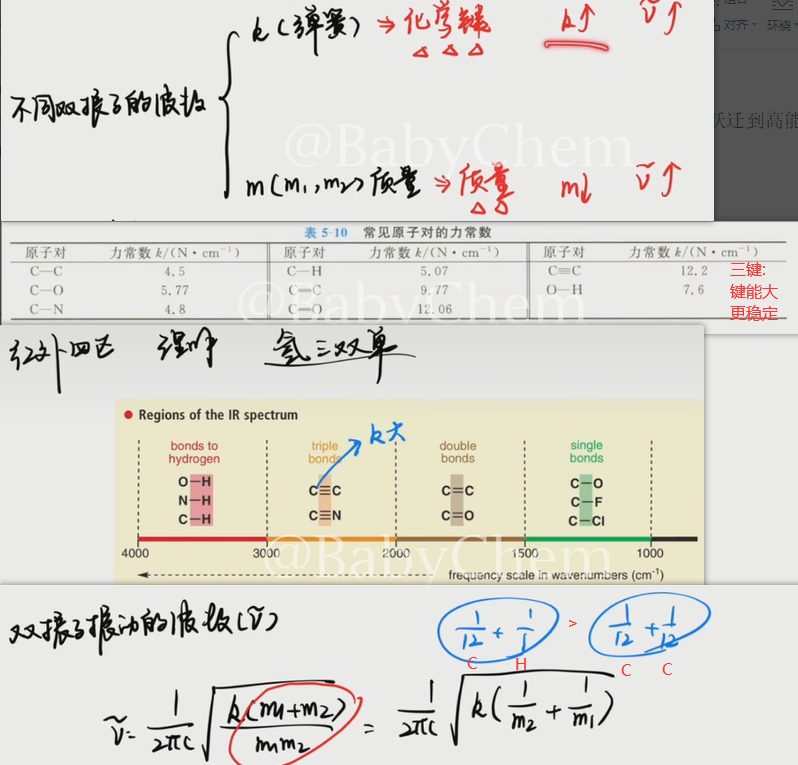 k(弹簧) ⇒ 化学键 k↑ ṽ↑
对齐 环绕
不同双振子的波数
跃迁到高能
@BabyChem
m(m₁,m₂)质量 ⇒ 质量 m↓ ṽ↑
表 5-10 常见原子对的力常数
原子对 力常数 k/(N·cm⁻¹) 原子对 力常数 k/(N·cm⁻¹) 原子对 力常数 k/(N·cm⁻¹)
C—C 4.5 C—H 5.07 C≡C 12.2
C—O 5.77 C=C 9.77 O—H 7.6
C—N 4.8 C=O 12.06
三键:
键能大
更稳定
@BabyChem
红外四区 谱峰 氢三双单
● Regions of the IR spectrum
k大
bonds to hydrogen triple bonds double bonds single bonds
O—H C≡C C=C C—O
N—H C≡N C=O C—F
C—H C—Cl
@BabyChem
4000 3000 2000 1500 1000
frequency scale in wavenumbers (cm⁻¹)
双振子振动的波数(ṽ)
1/12 + 1/1 > 1/12 + 1/12
C H C C
ṽ = 1/2πc √(k(m₁+m₂)/m₁m₂) = 1/2πc √(k(1/m₂ + 1/m₁))